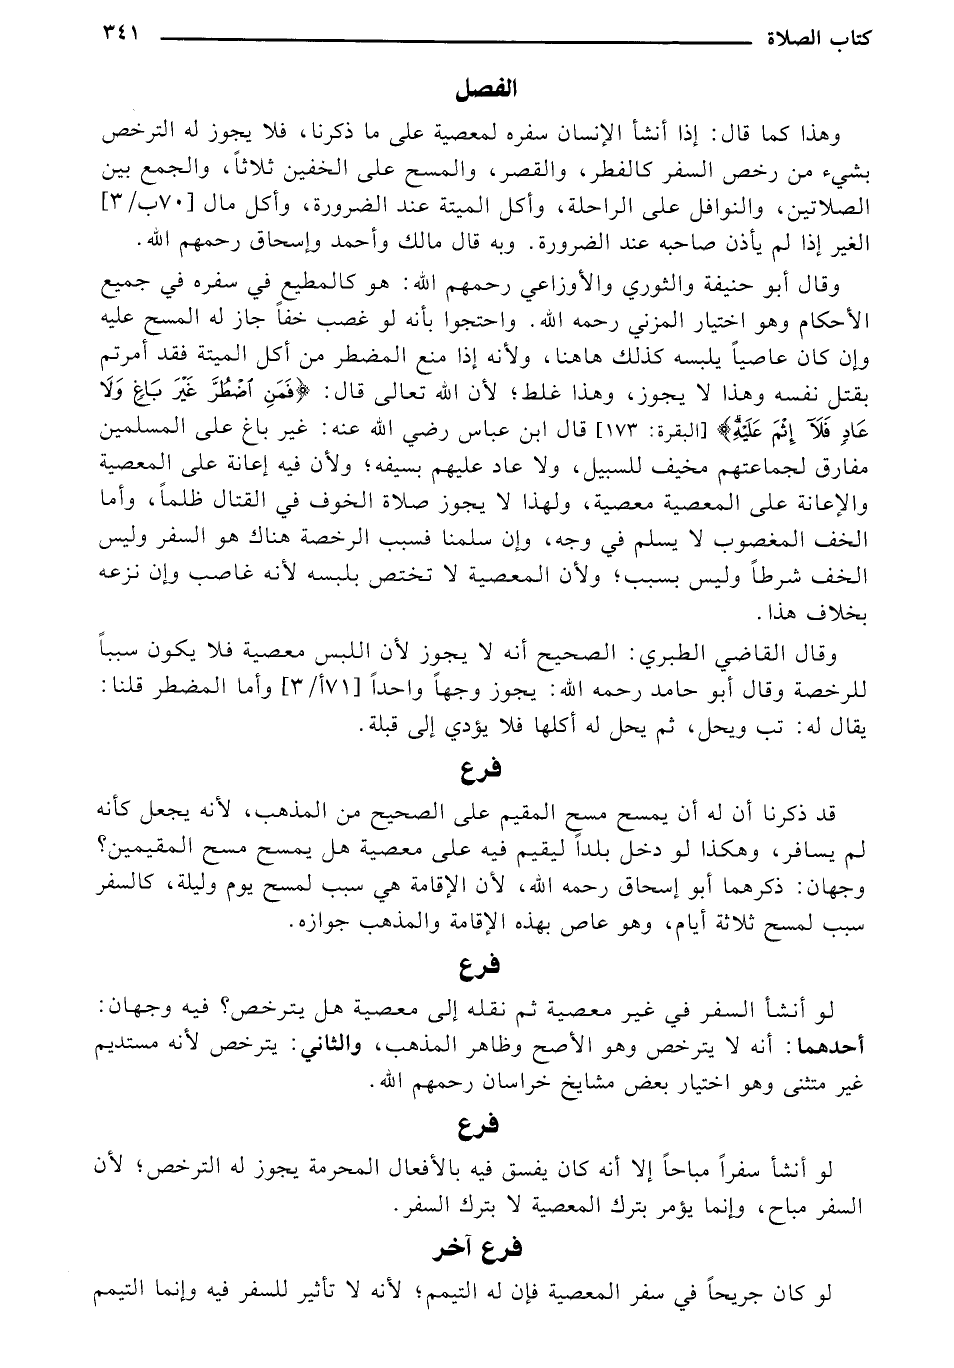 كتاب الصلاة ٣٤١
الفصل
وهذا كما قال: إذا أنشأ الإنسان سفره لمعصية على ما ذكرنا، فلا يجوز له الترخص
بشيء من رخص السفر كالفطر، والقصر، والمسح على الخفين ثلاثاً، والجمع بين
الصلاتين، والنوافل على الراحلة، وأكل الميتة عند الضرورة، وأكل مال [٧٠ب/٣]
الغير إذا لم يأذن صاحبه عند الضرورة. وبه قال مالك وأحمد وإسحاق رحمهم الله.
وقال أبو حنيفة والثوري والأوزاعي رحمهم الله: هو كالمطيع في سفره في جميع
الأحكام وهو اختيار المزني رحمه الله. واحتجوا بأنه لو غصب خفاً جاز له المسح عليه
وإن كان عاصياً يلبسه كذلك هاهنا، ولأنه إذا منع المضطر من أكل الميتة فقد أمرتم
بقتل نفسه وهذا لا يجوز، وهذا غلط؛ لأن الله تعالى قال: ﴿فَمَنِ ٱضْطُرَّ غَيْرَ بَاغٍ وَلَا
عَادٍ فَلَآ إِثْمَ عَلَيْهِ﴾ [البقرة: ١٧٣] قال ابن عباس رضي الله عنه: غير باغ على المسلمين
مفارق لجماعتهم مخيف للسبيل، ولا عاد عليهم بسيفه؛ ولأن فيه إعانة على المعصية
والإعانة على المعصية معصية، ولهذا لا يجوز صلاة الخوف في القتال ظلماً، وأما
الخف المغصوب لا يسلم في وجه، وإن سلمنا فسبب الرخصة هناك هو السفر وليس
الخف شرطاً وليس بسبب؛ ولأن المعصية لا تختص بلبسه لأنه غاصب وإن نزعه
بخلاف هذا.
وقال القاضي الطبري: الصحيح أنه لا يجوز لأن اللبس معصية فلا يكون سبباً
للرخصة وقال أبو حامد رحمه الله: يجوز وجهاً واحداً [٧١أ/٣] وأما المضطر قلنا:
يقال له: تب ويحل، ثم يحل له أكلها فلا يؤدي إلى قبلة.
فرع
قد ذكرنا أن له أن يمسح مسح المقيم على الصحيح من المذهب، لأنه يجعل كأنه
لم يسافر، وهكذا لو دخل بلداً ليقيم فيه على معصية هل يمسح مسح المقيمين؟
وجهان: ذكرهما أبو إسحاق رحمه الله، لأن الإقامة هي سبب لمسح يوم وليلة، كالسفر
سبب لمسح ثلاثة أيام، وهو عاص بهذه الإقامة والمذهب جوازه.
فرع
لو أنشأ السفر في غير معصية ثم نقله إلى معصية هل يترخص؟ فيه وجهان:
أحدهما: أنه لا يترخص وهو الأصح وظاهر المذهب، والثاني: يترخص لأنه مستديم
غير متثنى وهو اختيار بعض مشايخ خراسان رحمهم الله.
فرع
لو أنشأ سفراً مباحاً إلا أنه كان يفسق فيه بالأفعال المحرمة يجوز له الترخص؛ لأن
السفر مباح، وإنما يؤمر بترك المعصية لا بترك السفر.
فرع آخر
لو كان جريحاً في سفر المعصية فإن له التيمم؛ لأنه لا تأثير للسفر فيه وإنما التيمم